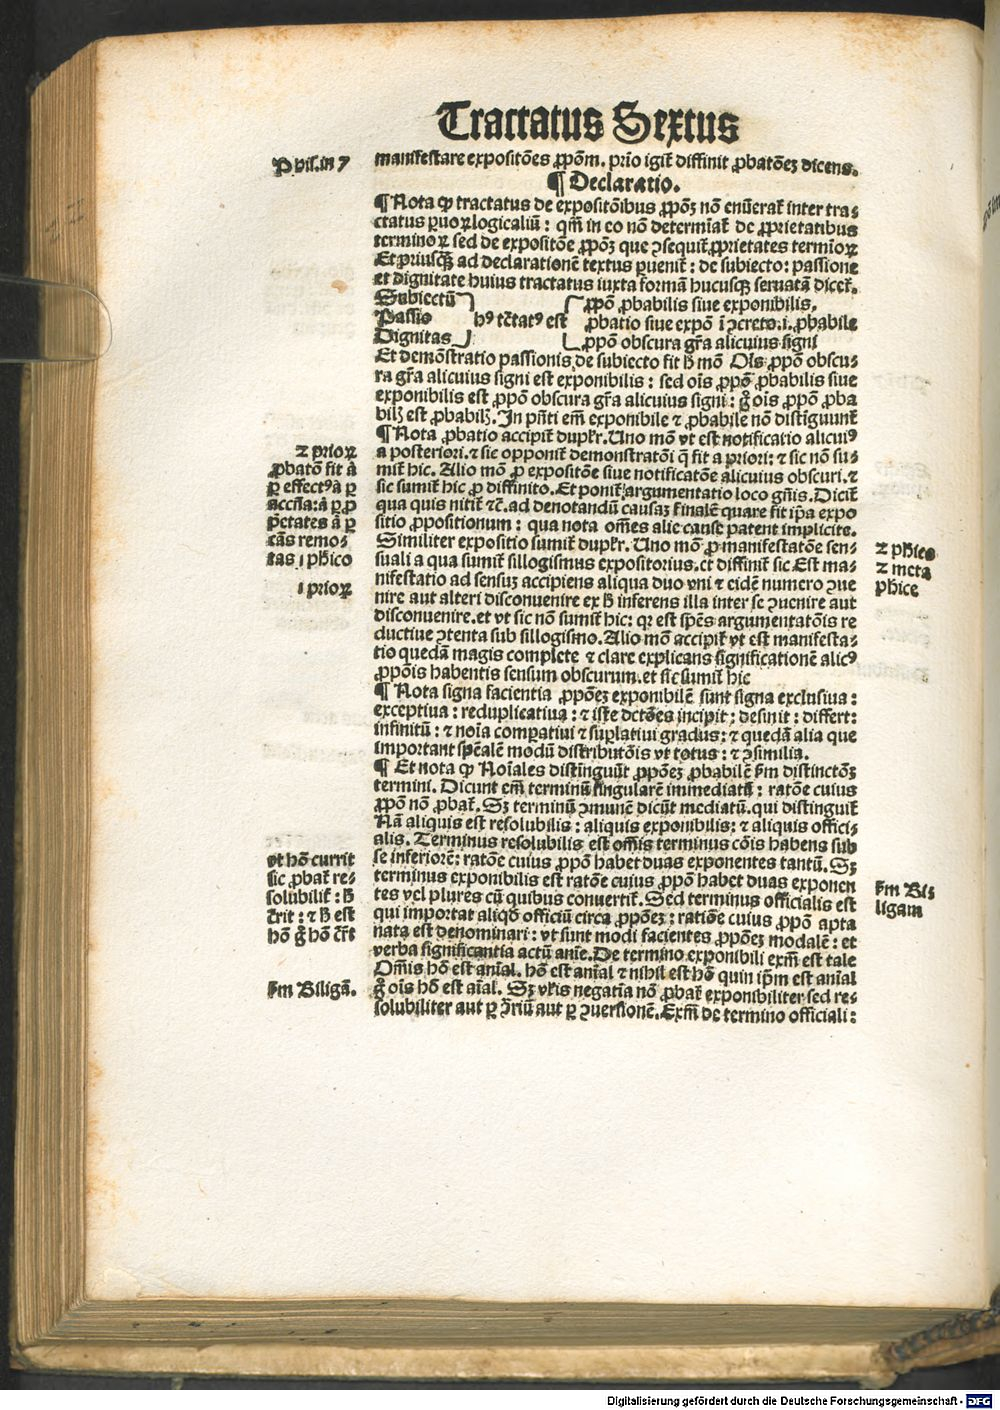 Tractatus Sextus
manifestare expositões ꝓpõm. prio igit̃ diffinit ꝓbatõeꝫ dicens.
¶ Declaratio.
¶ Nota ꝙ tractatus de expositõibus ꝓpõꝫ nõ enũerat̃ inter tra-
ctatus ꝑuoꝝ logicaliũ: qm̃ in eo nõ determiat̃ de ꝓprietatibus
terminoꝝ sed de expositõe ꝓpõꝫ que ɔsequit̃ ꝓprietates termĩoꝝ
Et priusqꝫ ad declarationẽ textus ꝑuenit̃: de subiecto: passione
et dignitate huius tractatus iuxta formã hucusqꝫ seruatã dicet̃.
Subiectũ
Passio
Dignitas
hꝰ tc̃tatꝰ est
ꝓpõ ꝓbabilis siue exponibilis.
ꝓbatio siue expõ ĩ ɔcreto.i.ꝓbabile
ꝓpõ obscura gr̃a alicuius signi
Et demõstratio passionis de subiecto fit ħ mõ Oĩs ꝓpõ obscu-
ra gr̃a alicuius signi est exponibilis: sed oĩs ꝓpõ ꝓbabilis siue
exponibilis est ꝓpõ obscura gr̃a alicuius signi: g̊ oĩs ꝓpõ ꝓba
bilꝫ est ꝓbabilꝫ. In pñti em̃ exponibile ⁊ ꝓbabile nõ distĩguunt̃
¶ Nota ꝓbatio accipit̃ duplr̃. Uno mõ vt est notificatio alicuiꝰ
a posteriori. ⁊ sic opponit̃ demonstratõi q̃ fit a priori: ⁊ sic nõ su-
mit̃ hic. Alio mõ ꝓ expositõe siue notificatõe alicuius obscuri. ⁊
sic sumit̃ hic ꝓ diffinito. Et ponit̃ argumentatio loco gñis. Dicit̃
qua quis nitit̃ ⁊c̃. ad denotandũ causaꝫ finalẽ quare fit ip̃a expo
sitio ꝓpositionum: qua nota om̃es alie cause patent implicite.
Similiter expositio sumit̃ duplr̃. Uno mõ ꝓ manifestatõe sen-
suali a qua sumit̃ sillogismus expositorius. et diffinit̃ sic Est ma-
nifestatio ad sensuꝫ accipiens aliqua duo vni ⁊ eidẽ numero ɔue
nire aut alteri disconuenire ex ħ inferens illa inter se ɔuenire aut
disconuenire. et vt sic nõ sumit̃ hic: qꝛ est sp̃es argumentatõis re
ductiue ɔtenta sub sillogismo. Alio mõ accipit̃ vt est manifesta-
tio quedã magis complete ⁊ clare explicans significationẽ alicꝰ
ꝓpõis habentis sensum obscurum. et sic sumit̃ hic
¶ Nota signa facientia ꝓpõeꝫ exponibilẽ sunt signa exclusiua:
exceptiua: reduplicatiua: ⁊ iste dctões incipit: desinit: differt:
infinitũ: ⁊ noĩa comꝑatiui ⁊ suꝑlatiui gradus: ⁊ quedã alia que
important spẽalẽ modũ distributõis vt totus: ⁊ ɔsimilia.
¶ Et nota ꝙ Noĩales distĩguũt ꝓpõeꝫ ꝓbabilẽ ẜm distinctõꝫ
termini. Dicunt em̃ terminũ singularẽ immediatũ: ratõe cuius
ꝓpõ nõ ꝓbat̃. Sꝫ terminũ ɔmunẽ dicũt mediatũ. qui distinguit̃
Nã aliquis est resolubilis: aliquis exponibilis: ⁊ aliquis offici-
alis. Terminus resolubilis est om̃is terminus cõis habens sub
se inferiorẽ: ratõe cuius ꝓpõ habet duas exponentes tantũ. Sꝫ
terminus exponibilis est ratõe cuius ꝓpõ habet duas exponen
tes vel plures cũ quibus conuertit̃. Sed terminus officialis est
qui importat aliqđ officiũ circa ꝓpõeꝫ: ratiõe cuius ꝓpõ apta
nata est denominari: vt sunt modi facientes ꝓpõeꝫ modalẽ: et
verba significantia actũ anĩe. De termino exponibili exm̃ est tale
Om̃is hõ est anĩal. hõ est anĩal ⁊ nihil est hõ quin ip̃m est anĩal
g̊ oĩs hõ est aĩal. Sꝫ vl̃is negatĩa nõ ꝓbat̃ exponibiliter sed re-
solubiliter aut ꝑ ɔ̃riũ aut ꝑ ɔuersionẽ. Exm̃ de termino officiali:
⁊ prioꝝ
ꝓbatõ fit â
ꝑ effectꝰ â ꝑ
accña: â ꝑ ꝓ
p̃etates â ꝑ
cãs remo-
tas i ph̃ico
i prioꝝ
vt hõ currit
sic ꝓbat̃ re-
solubilit̃: ħ
c̃rit: ⁊ ħ est
hõ g̊ hõ c̃rit
ẜm Biligã.
⁊ ph̃ice
⁊ meta
ph̃ice
ẜm Bi-
ligam
Digitalisierung gefördert durch die Deutsche Forschungsgemeinschaft - DFG